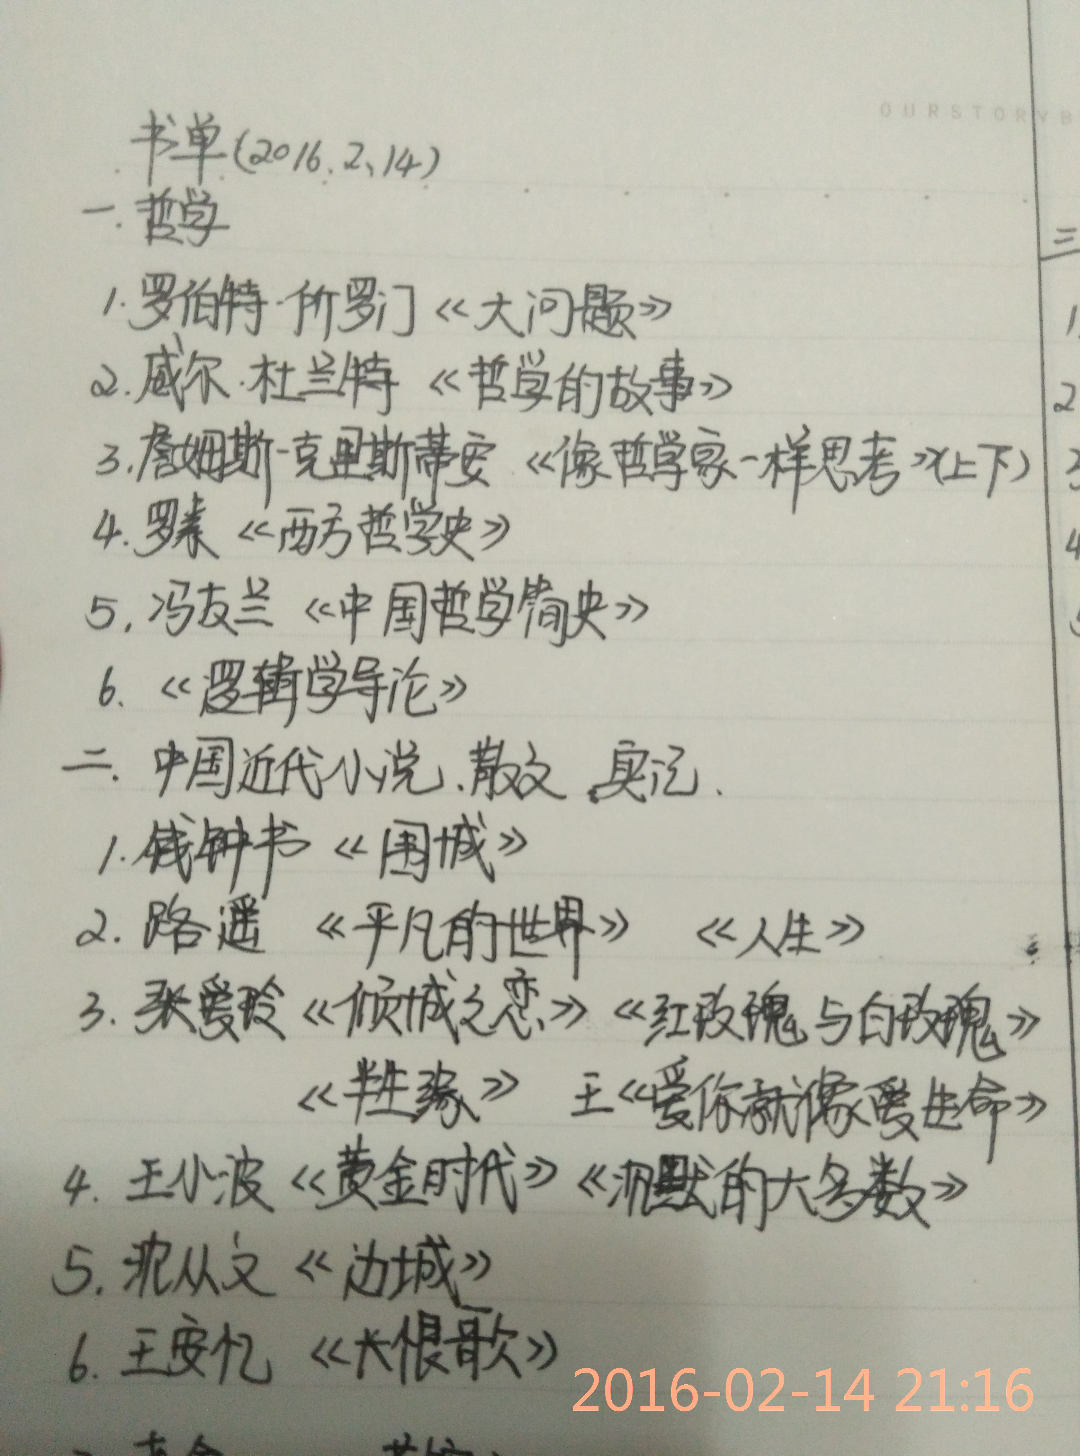 OURSTORYB
书单(2016.2、14)
一.哲学
1.罗伯特·所罗门《大问题》
2.威尔·杜兰特《哲学的故事》
3.詹姆斯·克里斯蒂安《像哲学家一样思考》(上下)
4.罗素《西方哲学史》
5.冯友兰《中国哲学简史》
6.《逻辑学导论》
二.中国近代小说、散文、实记.
1.钱钟书《围城》
2.路遥《平凡的世界》《人生》
3.张爱玲《倾城之恋》《红玫瑰与白玫瑰》
《半生缘》 王《爱你就像爱生命》
4.王小波《黄金时代》《沉默的大多数》
5.沈从文《边城》
6.王安忆《长恨歌》
三
1.
2
3
4
2016-02-14 21:16